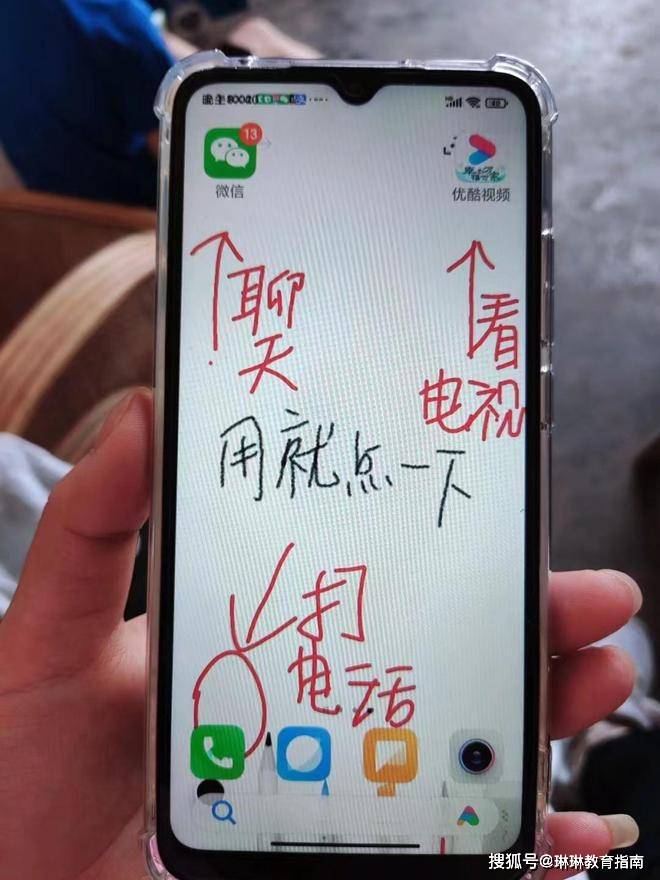 13
微信
优酷视频
聊
天
看
电视
用就点一下
打
电话
搜狐号@琳琳教育指南